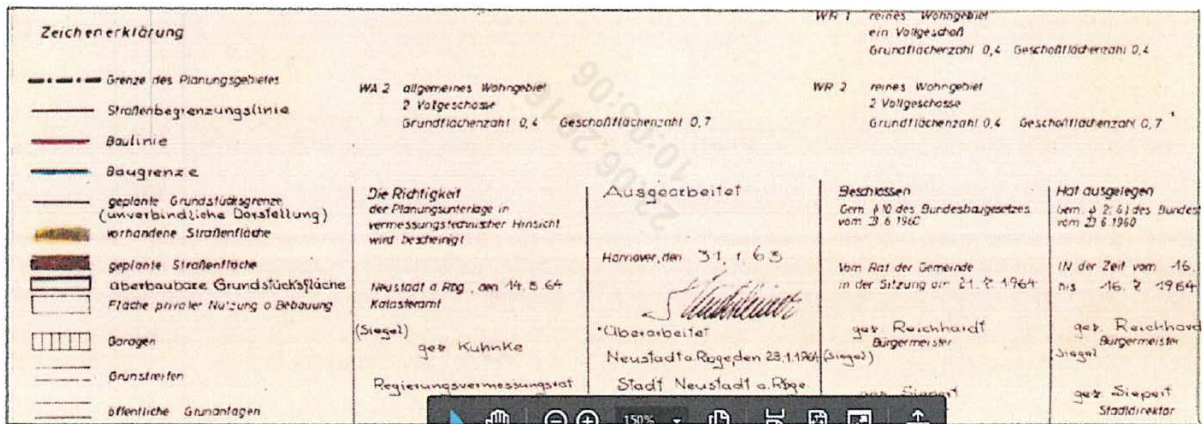 Zeichenerklärung
Grenze des Planungsgebietes
Straßenbegrenzungslinie
Baulinie
Baugrenze
geplante Grundstücksgrenze
(unverbindliche Darstellung)
vorhandene Straßenfläche
geplante Straßenfläche
überbaubare Grundstücksfläche
Fläche privater Nutzung o Bebauung
Garagen
Grünstreifen
öffentliche Grünanlagen
WA 2 allgemeines Wohngebiet
2 Vollgeschosse
Grundflächenzahl 0,4 Geschoßflächenzahl 0,7
WR 1 reines Wohngebiet
ein Vollgeschoß
Grundflächenzahl 0,4 Geschoßflächenzahl 0,4
WR 2 reines Wohngebiet
2 Vollgeschosse
Grundflächenzahl 0,4 Geschoßflächenzahl 0,7
Die Richtigkeit
der Planungsunterlage in
vermessungstechnischer Hinsicht
wird bescheinigt
Neustadt a Rbg, den 14. 5. 64
Katasteramt
(Siegel)
gez Kuhnke
Regierungsvermessungsrat
Ausgearbeitet
Hannover, den 31. 1. 63
Überarbeitet
Neustadt a. Rbge, den 23.1.1964 (Siegel)
Stadt Neustadt a. Rbge
Beschlossen
Gem. § 10 des Bundesbaugesetzes
vom 23. 6. 1960
Vom Rat der Gemeinde
in der Sitzung am 21. 1964
gez. Reichhardt
Bürgermeister
gez Siepert
Hat ausgelegen
Gem. § 2, 6) des Bundes
vom 23 6 1960
IN der Zeit vom 16.
bis 16. 1964
gez. Reichhard
Bürgermeister
Siegel
gez Siepert
Stadtdirektor
10:05:06
150%